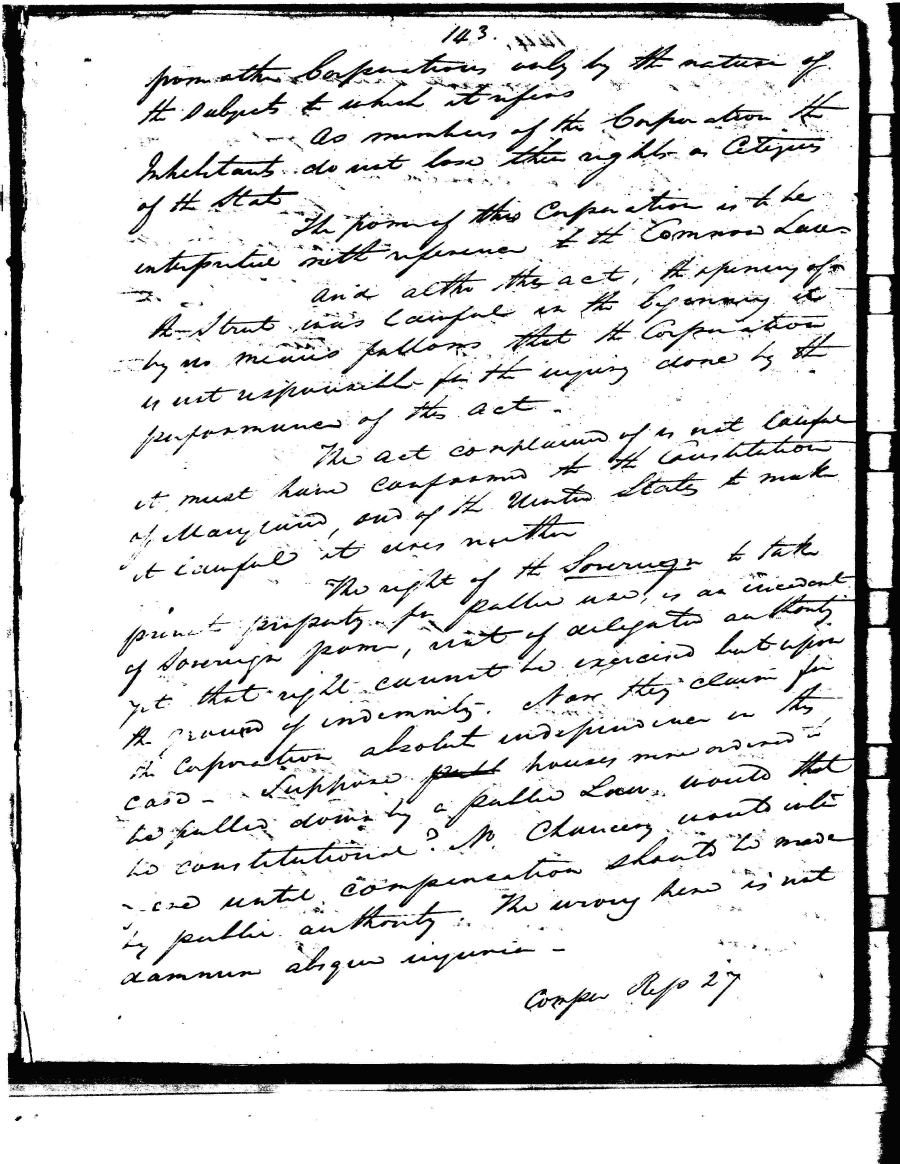 143.
from other Corporations only by the nature of
the subjects to which it refers
As members of the Corporation the
Inhabitants do not lose their rights as Citizens
of the State
The power of this Corporation is to be
interpreted with reference to the Common Law
And altho the act, the opening of
the Street was lawful in the beginning it
by no means follows that the Corporation
is not responsible for the injury done by the
performance of the act -
The act complained of is not lawful
it must have conformed to the Constitution
of Maryland, and of the United States to make
it lawful it does neither
The right of the Sovereign to take
private property for public use, is an incident
of Sovereign power, not of delegated authority
yet that right cannot be exercised but upon
the ground of indemnity. Now they claim for
the Corporation absolute independence in this
case - Suppose houses were ordered to
be pulled down by a public Law, would that
be constitutional? No. Chancery would inter
- cede until compensation should be made
by public authority. The wrong here is not
damnum absque injuria -
Rep 27